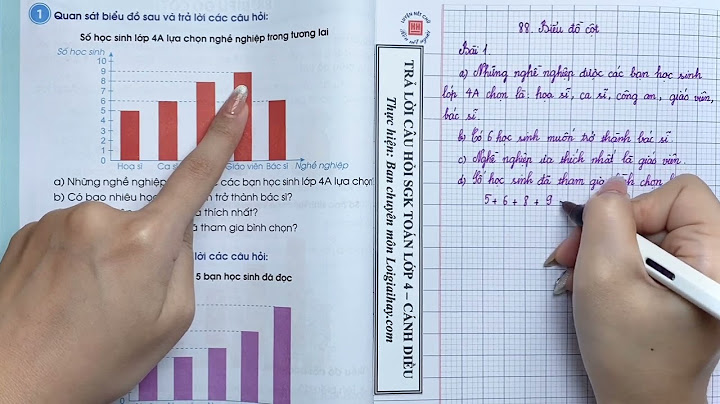 1 Quan sát biểu đồ sau và trả lời các câu hỏi:
Số học sinh lớp 4A lựa chọn nghề nghiệp trong tương lai
Số học sinh
10
9
8
7
6
5
4
3
2
1
0
Hoạ sĩ Ca Giáo viên Bác sĩ Nghề nghiệp
a) Những nghề nghiệp các bạn học sinh lớp 4A lựa chọn
b) Có bao nhiêu học trở thành bác sĩ?
a thích nhất?
tham gia bình chọn?
lời các câu hỏi:
5 bạn học sinh đã đọc
0
TRẢ LỜI CÂU HỎI SGK TOÁN LỚP 4 – CÁNH DIỀU
Thực hiện: Ban chuyên môn Loigiaihay.com
LUYỆN NÉT CHỮ
88. Biểu đồ cột
Bài 1.
a) Những nghề nghiệp được các bạn học sinh
lớp 4A chọn là: họa sĩ, ca sĩ, công an, giáo viên,
bác sĩ.
b) Có 6 học sinh muốn trở thành bác sĩ.
c) Nghề nghiệp ưa thích nhất là giáo viên.
d) Số học sinh đã tham gia bình chọn
5 + 6 + 8 + 9